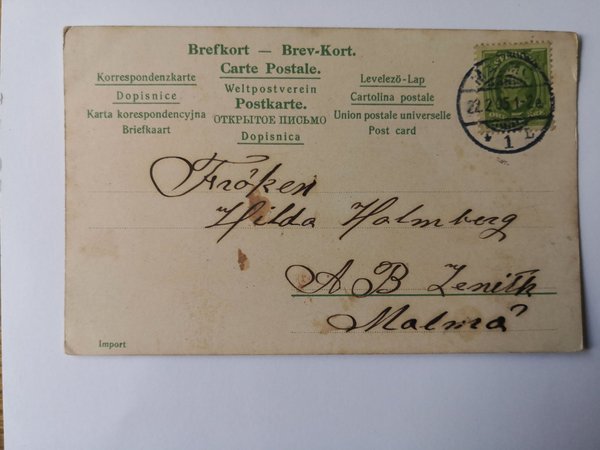 Brefkort — Brev-Kort.
Carte Postale.
Korrespondenzkarte
Dopisnice
Karta korespondencyjna
Briefkaart
Weltpostverein
Postkarte.
ОТКРЫТОЕ ПИСЬМО
Dopisnica
Levelező-Lap
Cartolina postale
Union postale universelle
Post card
22.2.05.1-2
1
Fröken
Hilda Holmberg
A B Zenith
Malmö
Import